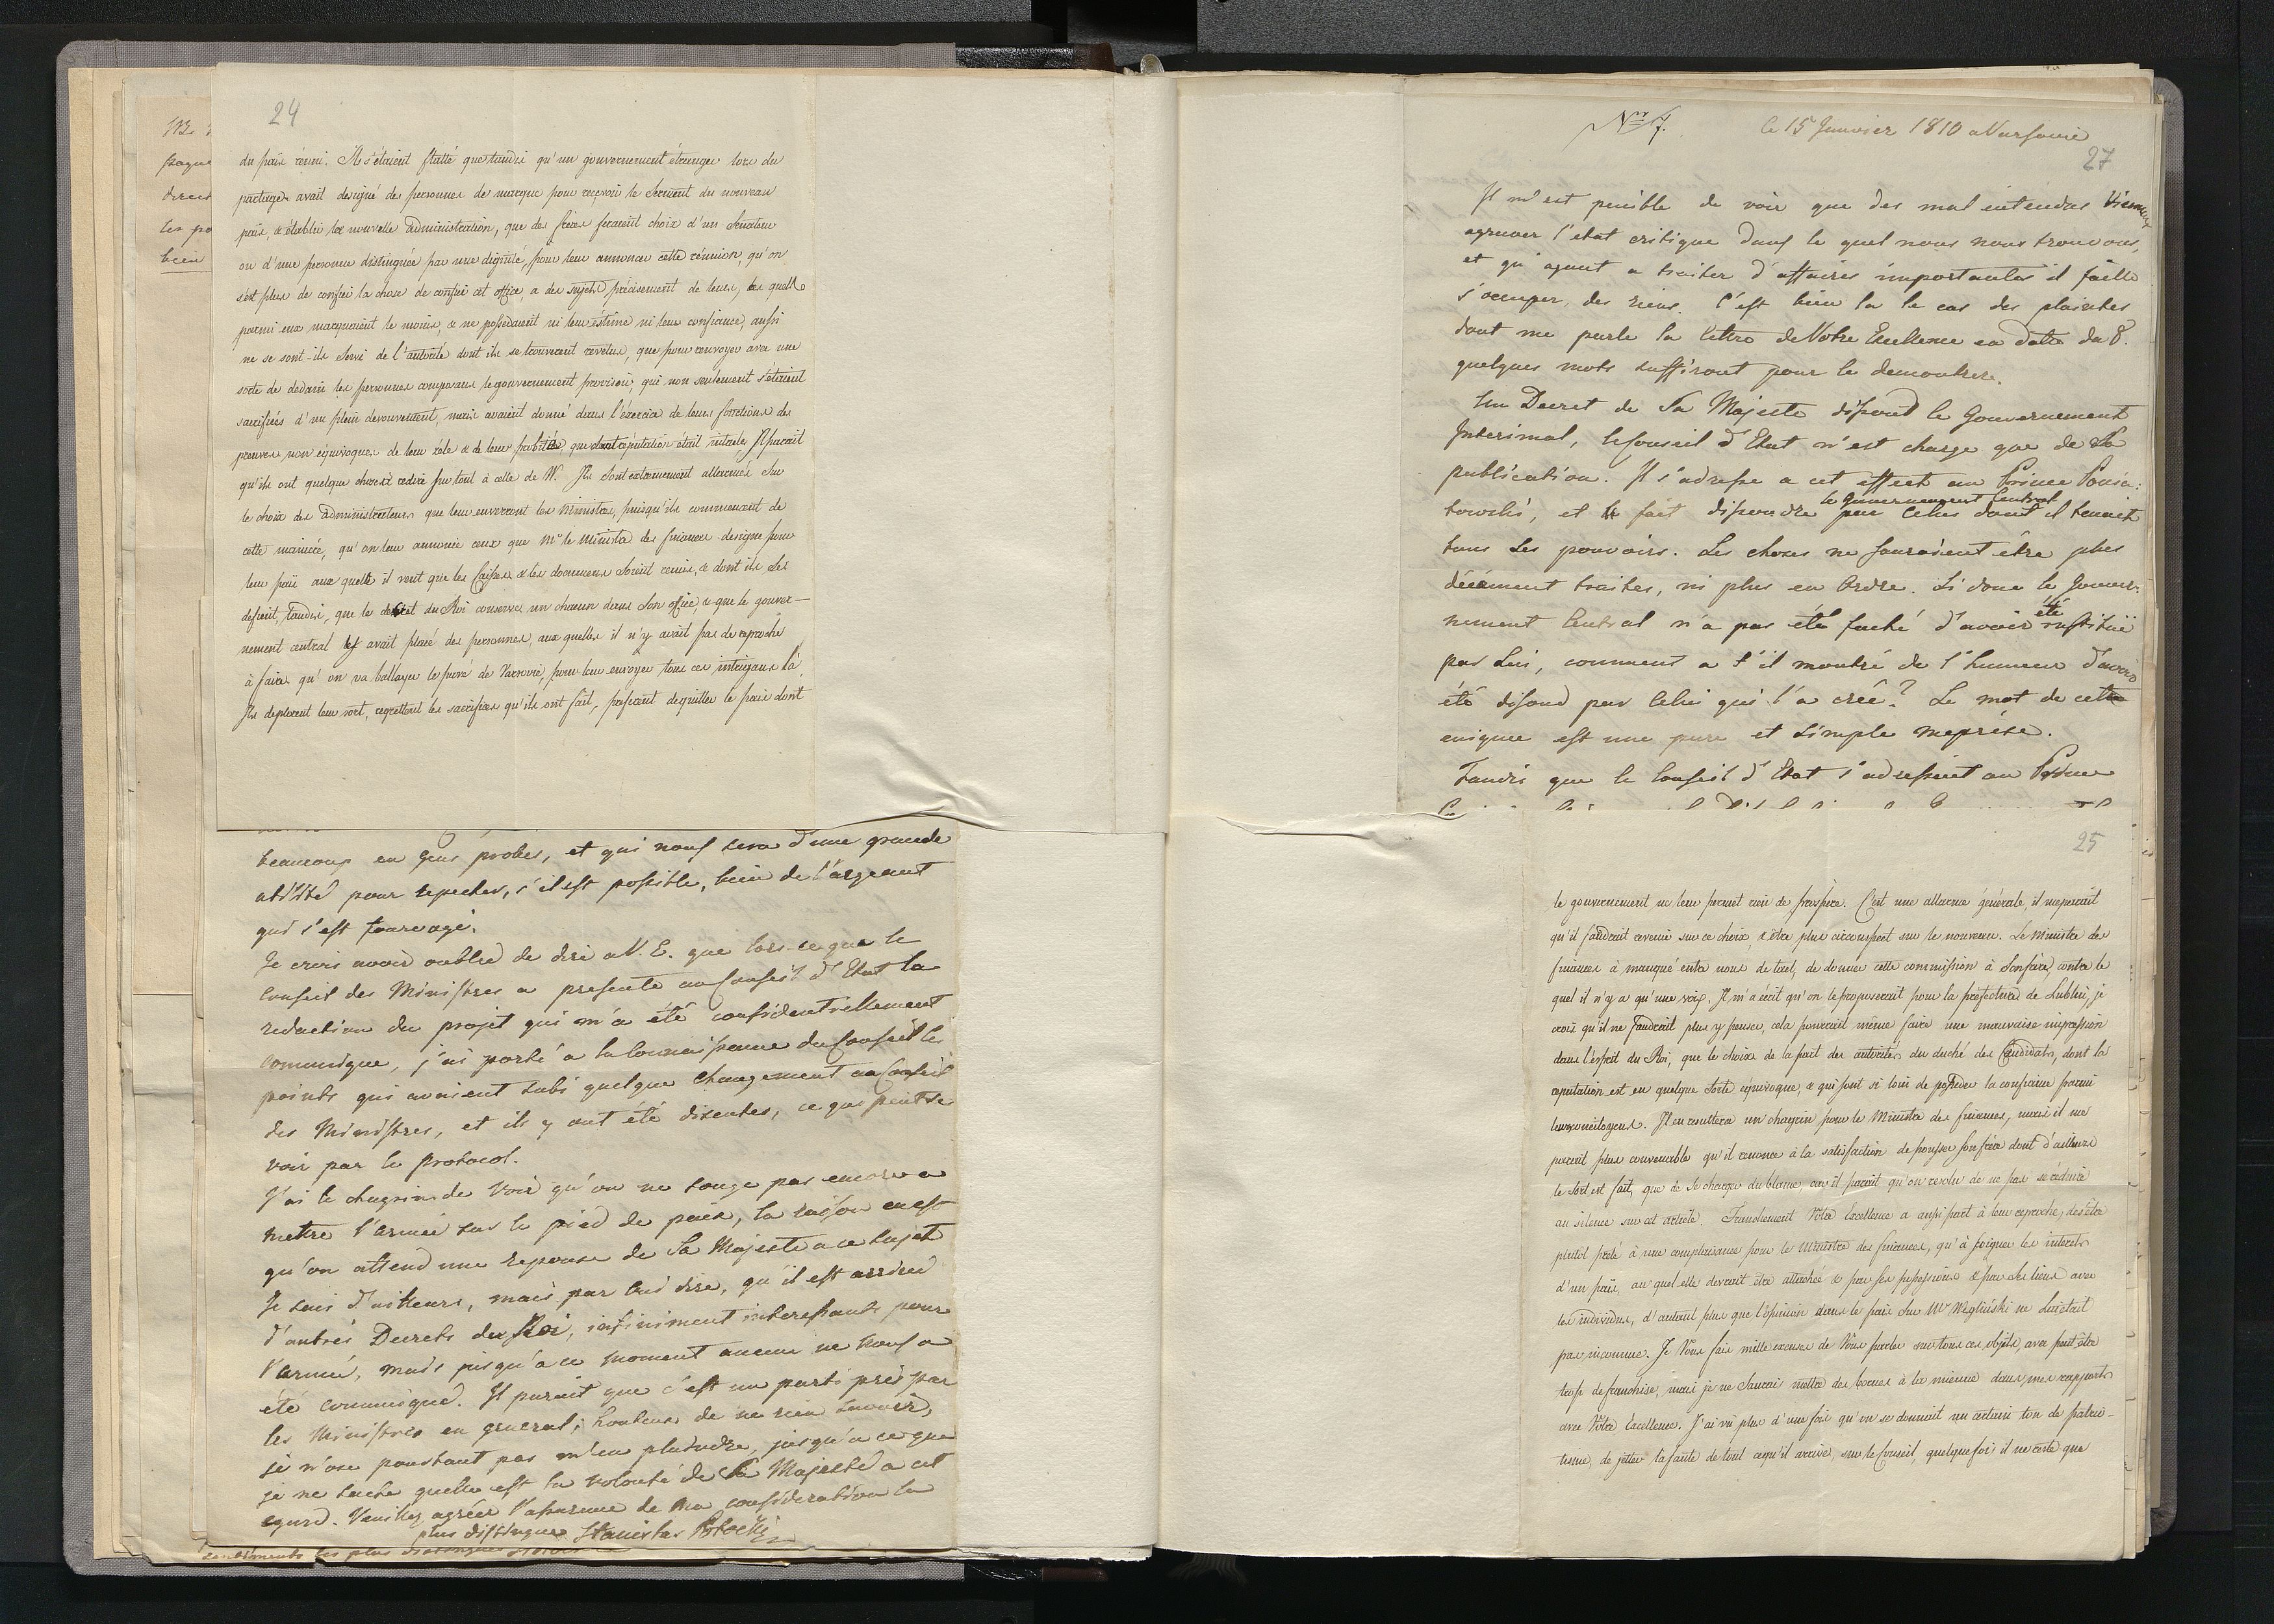 24
du païs réuni. Ils s'étaient flatté que tandis qu'un gouvernement étranger lors du
partage avait designé des personnes de marque pour recevoir le serment du nouveau
païs, & établir la nouvelle administration, que des frères feraient choix d'un Senateur
ou d'une personne distinguée par une dignité, pour leur annoncer cette réunion, qu'on
s'est plus de confier la chose de confier cet office, a des sujets précisement de leurs, les quells
parmi eux marquaient le moins, & ne possedaient ni leur estime ni leur confiance, aussi
ne se sont-ils servi de l'autorité dont ils se trouverent revetus, que pour renvoyer avec une
sorte de dedain les personnes composans le gouvernement provisoir, qui non seulement s'étaient
sacrifiées d'un plein devouvement, mais avaient donné dans l'éxercice de leurs fonctions des
preuves non équivoques de leur zèle & de leur probité, que dont reputation était intacte. Il parait
qu'ils ont quelque chose à redire sur tout à celle de W. Ils sont extremement allarmés sur
le choix des administrateurs que leur enverront les Ministres, puisqu'ils commencent de
cette manière, qu'on leur annonce ceux que Mr le Ministre des finances designe pour
leur païs aux quells il veut que les Caisses & les documens soient remis, & dont ils se
defient, tandis, que le decret du Roi conserve un chacun dans son office, & que le gouver-
nement central y avait placé des personnes, aux quelles il n'y avait pas de reproche
à faire, qu'on va ballayer le pavé de Varsovie, pour leur envoyer tous ces intrigans là.
Ils deplorent leur sort, regrettent les sacrifices qu'ils ont fait, preferent de quitter le païs dont
beaucoup en gens probes, et qui nous sera d'une grande
utilité pour repecher, s'il est possible, bien de l'argeant
qui s'est fourvagé.
Je crois avoir oublié de dire a V. E. que lors-ce que le
Conseil des Ministres a presenté au Conseil d'Etat la
redaction du projet qui m'a été confidentiellement
comunique, j'ai porté a la connaissance du Conseil les
points qui avaient subi quelque changement au Conseil
des Ministres, et ils y ont été discutes, ce qui peut se
voir par le protocol.
J'ai le chagrin de voir qu'on ne songe pas encore a
mettre l'armée sur le pied de paix, la raison en est
qu'on attend une reponse de Sa Majesté a ce sujet
Je sais d'ailleurs, mais par ouï dire, qu'il est arrivé
d'autres Decrets du Roi, infiniment interessants pour
l'armée, mais jusqu'a ce moment aucun ne nous a
été communiqué. Il parait que c'est un parti pris par
les Ministres en general; honteux de ne rien savoir,
je n'ose pourtant pas m'en plaindre, jusqu'a ce que
je ne sache quelle est la volonté de Sa Majesté a cet
egard. Veuillez agréer l'assurance de ma consideration la
plus distinguée Stanislas Potocki
Nro 7.
le 15 Janvier 1810 a Varsovie
27
Il m'est penible de voir que des mal entendus viennent
agraver l'etat critique dans le quel nous nous trouvons,
et qu'ayant a traiter d'affaires importantes il faille
s'occuper, des riens. C'est bien la le cas des plaintes
dont me parle la lettre de Votre Excellence en date du 8.
quelques mots suffiront pour le demontrer.
Un Decret de Sa Majeste dissout le Gouvernement
Interimal, le Conseil d'Etat n'est charge que de sa
publication. Il s'adresse a cet effect au Prince Ponia:
towski, et le fait dissoudre le Gouvernement Central par celui dont il tenait
tous ses pouvoirs. Les choses ne sauraient être plus
décément traites, ni plus en Ordre. Si donc le Gouver:
nement Central n'a pas été faché d'avoir été institué
par Lui, comment a t'il montré de l'humeur d'avoir
été dissoud par Celui qui l'a creé? Le mot de cette
enigme est une pure et simple meprise.
Tandis que le Conseil d'Etat s'adressait au Prince
25
le gouvernement ne leur promet rien de prospère. C'est une allarme générale, il me parait
qu'il faudrait revenir sur ce choix, & être plus circonspect sur le nouveau. Le Ministre des
finances à manqué entre nous de tact, de donner cette commission à son frère, contre le
quel il n'y a qu'une voix. Il m'a écrit qu'on le proposerait pour la prefecture de Lublin, je
crois qu'il ne faudrait plus y penser, cela pourrait même faire une mauvaise impression
dans l'esprit du Roi, que le choix de la part des autorités du duché des Candidats, dont la
reputation est en quelque sorte équivoque, & qui sont si loin de posseder la confiance parmi
leurs concitoyens. Il en resultera un chagrin pour le Ministre des finances, mais il me
parait plus convenable qu'il renonce à la satisfaction de pousser son frère dont d'ailleurs
le sort est fait, que de se charger du blame, car il parait qu'on resolu de ne pas se réduire
au silence sur cet article. Franchement Vôtre Excellence a aussi part à leur reproche, de s'être
plutôt prété à une complaisance pour le Ministre des finances, qu'à soigner les interets
d'un païs, au quel elle devrait être attachée & par ses possessions & par ses liens avec
les individus, d'autant plus que l'opinion dans le païs sur Mr Węgliński ne lui etait
pas inconnue. Je Vous fais mille excuses de Vous parler sur tous ces objets, avec peut être
trop de franchise, mais je ne saurai mettre des bornes à la mienne dans mes rapports
avec Vôtre Excellence. J'ai vû plus d'une fois qu'on se donnait un certain ton de patrio-
tisme, de jetter la faute de tout ce qu'il arrive, sur le Conseil, quelque fois il ne reste que